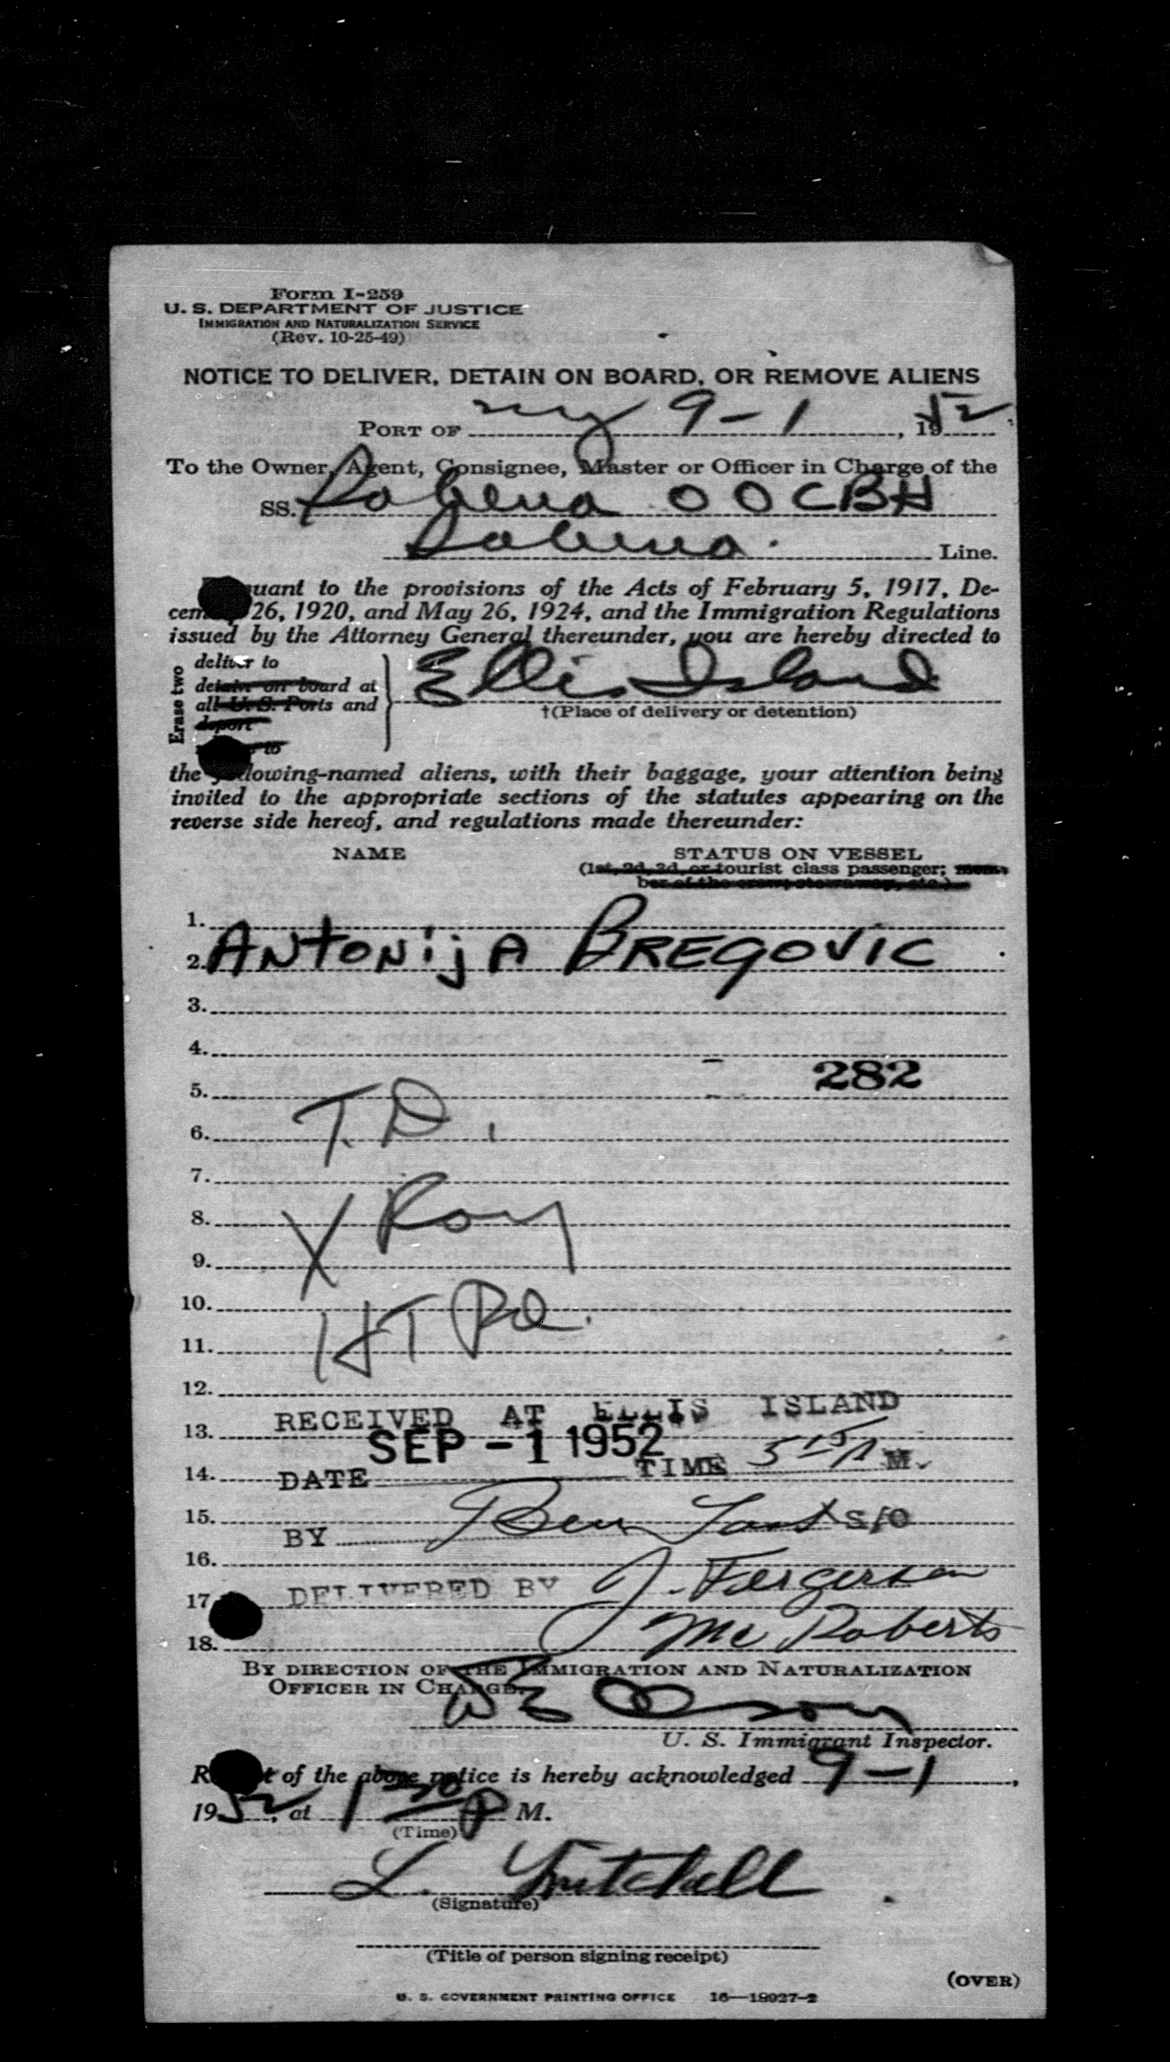 Form I-259
U. S. DEPARTMENT OF JUSTICE
IMMIGRATION AND NATURALIZATION SERVICE
(Rev. 10-25-49)
NOTICE TO DELIVER, DETAIN ON BOARD, OR REMOVE ALIENS
PORT OF ny 9-1, 1952
To the Owner, Agent, Consignee, Master or Officer in Charge of the
SS. Sabena OOCBH
Sabena. Line.
uant to the provisions of the Acts of February 5, 1917, De-
cem 26, 1920, and May 26, 1924, and the Immigration Regulations
issued by the Attorney General thereunder, you are hereby directed to
Erase two
deliver to
detain on board at
all U. S. Ports and
deport
to
Ellis Island
†(Place of delivery or detention)
the following-named aliens, with their baggage, your attention being
invited to the appropriate sections of the statutes appearing on the
reverse side hereof, and regulations made thereunder:
NAME STATUS ON VESSEL
(1st, 2d, 3d, or tourist class passenger; mem-
ber of the crew, stowaway, etc.)
1.
2. ANTONIJA BREGOVIC
3.
4.
282
5.
6. T.D.
7.
8. X Ray
9.
10.
11. HT Rd.
12.
RECEIVED AT ELLIS ISLAND
13. SEP -1 1952
14. DATE TIME 515 P M.
15.
BY Ben S/O
16.
17. DELIVERED BY J. Fergerson
18. J Mc Roberts
BY DIRECTION OF THE IMMIGRATION AND NATURALIZATION
OFFICER IN CHARGE.
Olson
U. S. Immigrant Inspector.
R t of the above notice is hereby acknowledged 9-1,
1952, at 1 30 P M.
(Time)
L. Mitchell
(Signature)
(Title of person signing receipt)
(OVER)
U. S. GOVERNMENT PRINTING OFFICE 16—18927-2